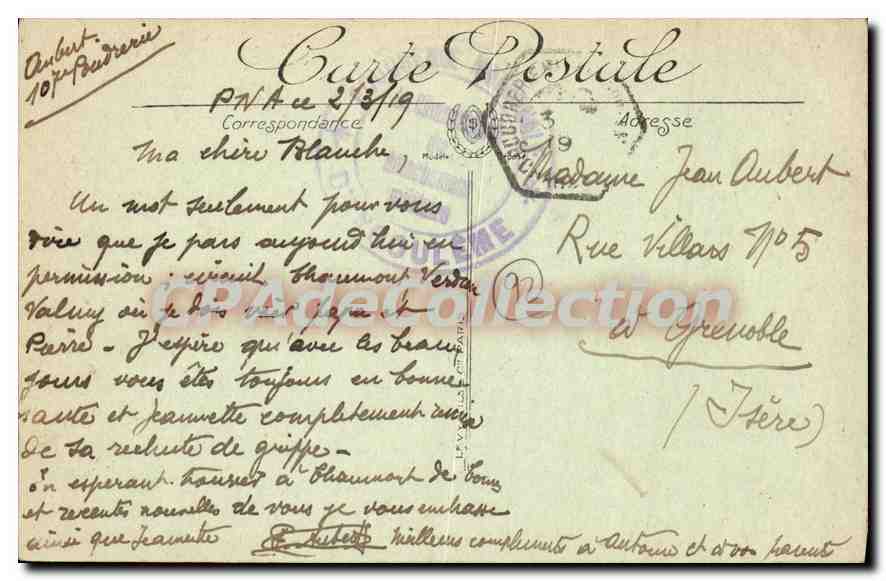 Aubert
107e Poudrerie
Carte Postale
PNA ce 2/3/19
Correspondance
Modèle
Adresse
3
19
ANGOULÊME
Ma chère Blanche,
Un mot seulement pour vous
dire que je pars aujourd'hui en
permission: circuit Chaumont Verdun
Valmy où je dois voir papa et
Pierre - J'espère qu'avec les beaux
jours vous êtes toujours en bonne
santé et Jeannette complètement remise
de sa rechute de grippe -
En esperant trouver à Chaumont de bonnes
et recentes nouvelles de vous je vous embrasse
ainsi que Jeannette Aubert
Meilleurs compliments à Antoine et à vos parents
Madame Jean Aubert
Rue Villars No 5
à Grenoble
(Isère)
CPAdeCollection
PARIS